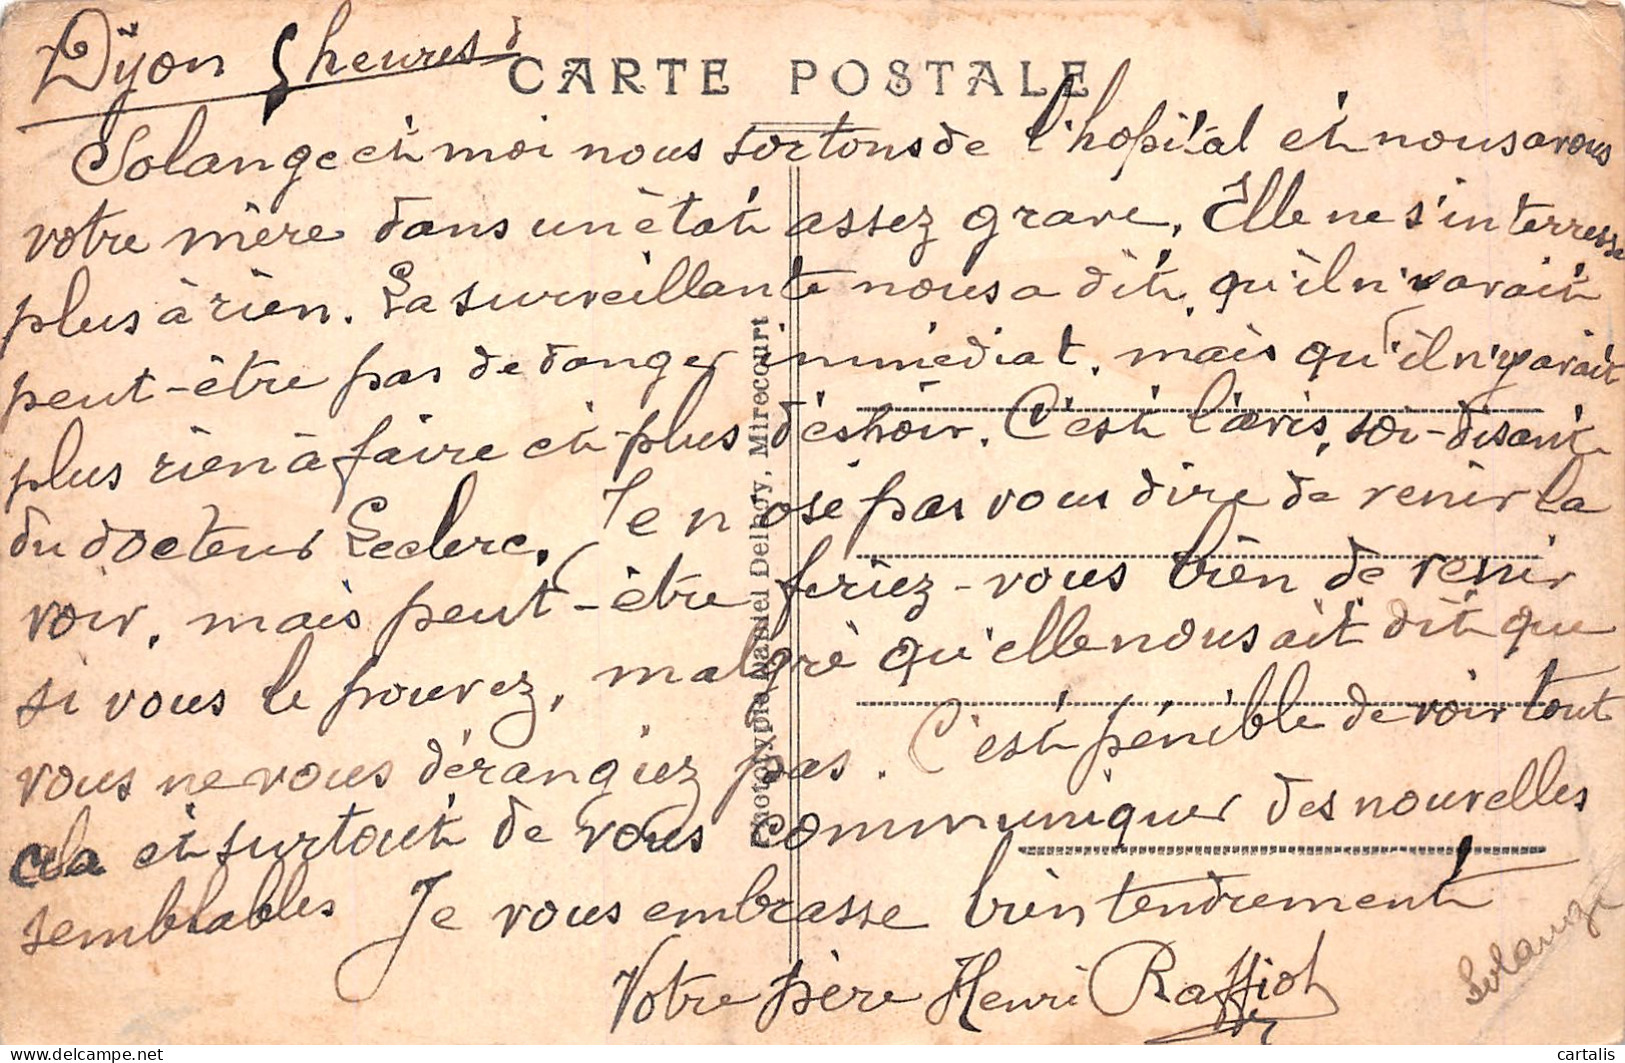 Dijon 5 heures
CARTE POSTALE
Solange et moi nous sortons de l'hopital et nous avons
votre mère dans un état assez grave. Elle ne s'interresse
plus à rien. La surveillante nous a dit, qu'il n'y avait
peut-être pas de danger immédiat, mais qu'il n'y avait
plus rien à faire et plus d'éshoir. C'est l'avis, soi-disant
du docteur Leclerc. Je n'ose pas vous dire de venir la
voir, mais peut-être feriez-vous bien de venir
si vous le pouvez, malgré qu'elle nous ait dit que
vous ne vous dérangiez pas. C'est pénible de voir tout
cela et surtout de vous communiquer des nouvelles
semblables Je vous embrasse bien tendrement
Votre père Henri Raffiot
Solange
Phototypie Daniel Delboy, Mirecourt
delcampe.net
cartalis